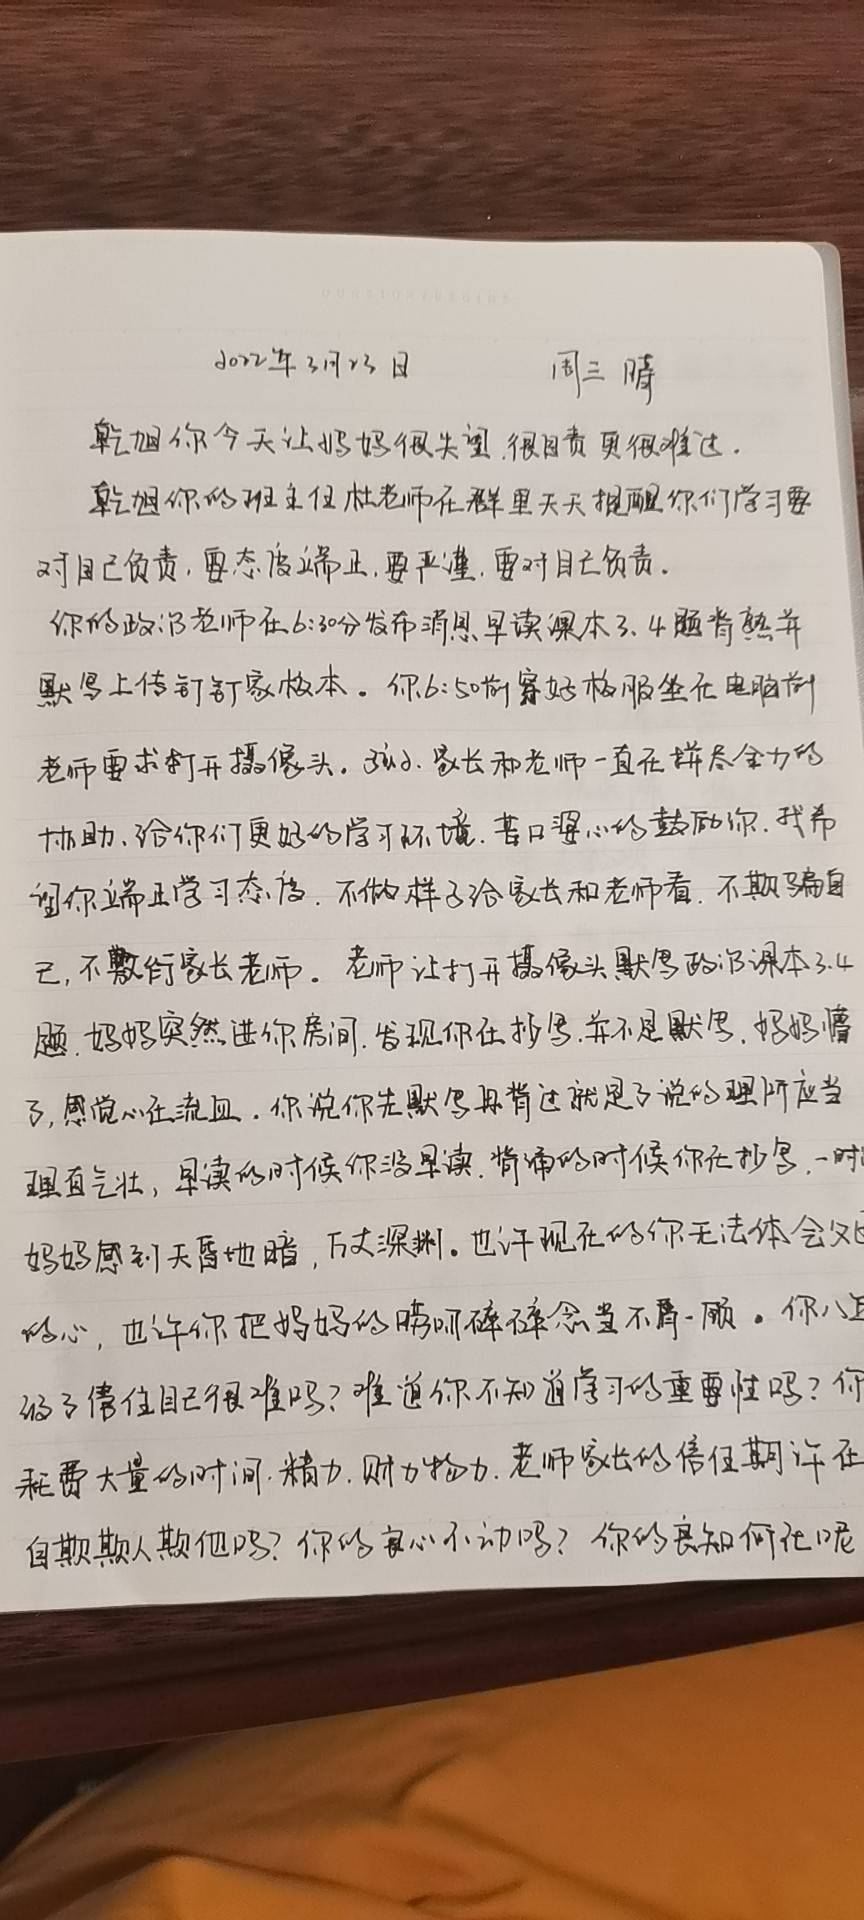 2022年3月23日 周三 晴
乾旭你今天让妈妈很失望,很自责更很难过.
乾旭你的班主任杜老师在群里天天提醒你们学习要
对自己负责,要态度端正,要严谨,要对自己负责.
你的政治老师在6:30分发布消息早读课本3.4题背熟并
默写上传钉钉家校本。你6:50前穿好校服坐在电脑前
老师要求打开摄像头.孩子、家长和老师一直在拼尽全力的
协助、给你们更好的学习环境.苦口婆心的鼓励你.我希
望你端正学习态度.不做样子给家长和老师看.不欺骗自
己,不敷衍家长老师。老师让打开摄像头默写政治课本3.4
题.妈妈突然进你房间.发现你在抄写.并不是默写.妈妈懵
了,感觉心在流血.你说你先默写再背过就是了说的理所应当
理直气壮,早读的时候你没早读.背诵的时候你在抄写.一时间
妈妈感到天昏地暗,万丈深渊。也许现在的你无法体会父
的心,也许你把妈妈的唠叨碎碎念当不屑一顾。你
得了信任自己很难吗?难道你不知道学习的重要性吗?你
耗费大量的时间.精力.财力物力.老师家长的信任期许在
自欺欺人欺他吗?你的良心不动吗?你的良知何在呢